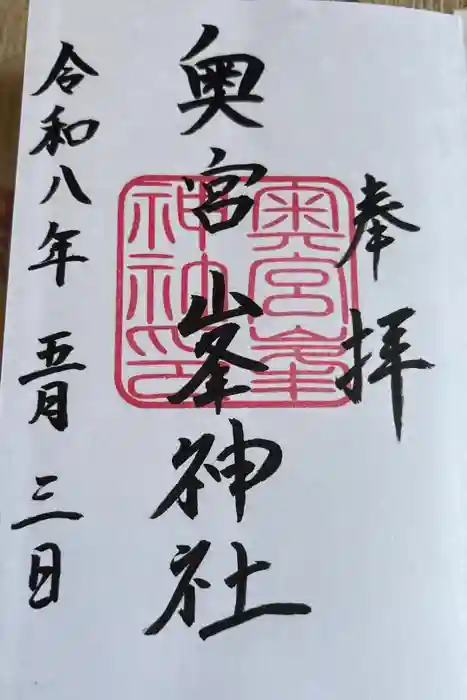 奉拝
奥宮峯神社
奥宮峯
神社印
令和八年五月三日